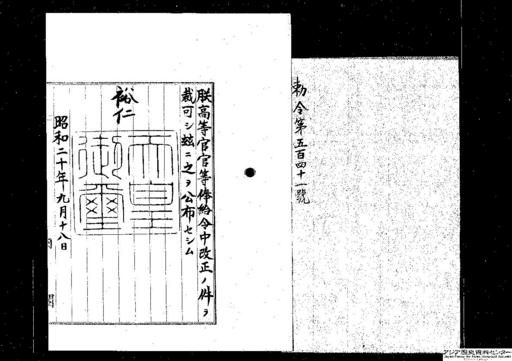 勅令第五百四十一號
朕高等官官等俸給令中改正ノ件ヲ
裁可シ玆ニ之ヲ公布セシム
裕仁
天皇
御璽
昭和二十年九月十八日
アジア歴史資料センター